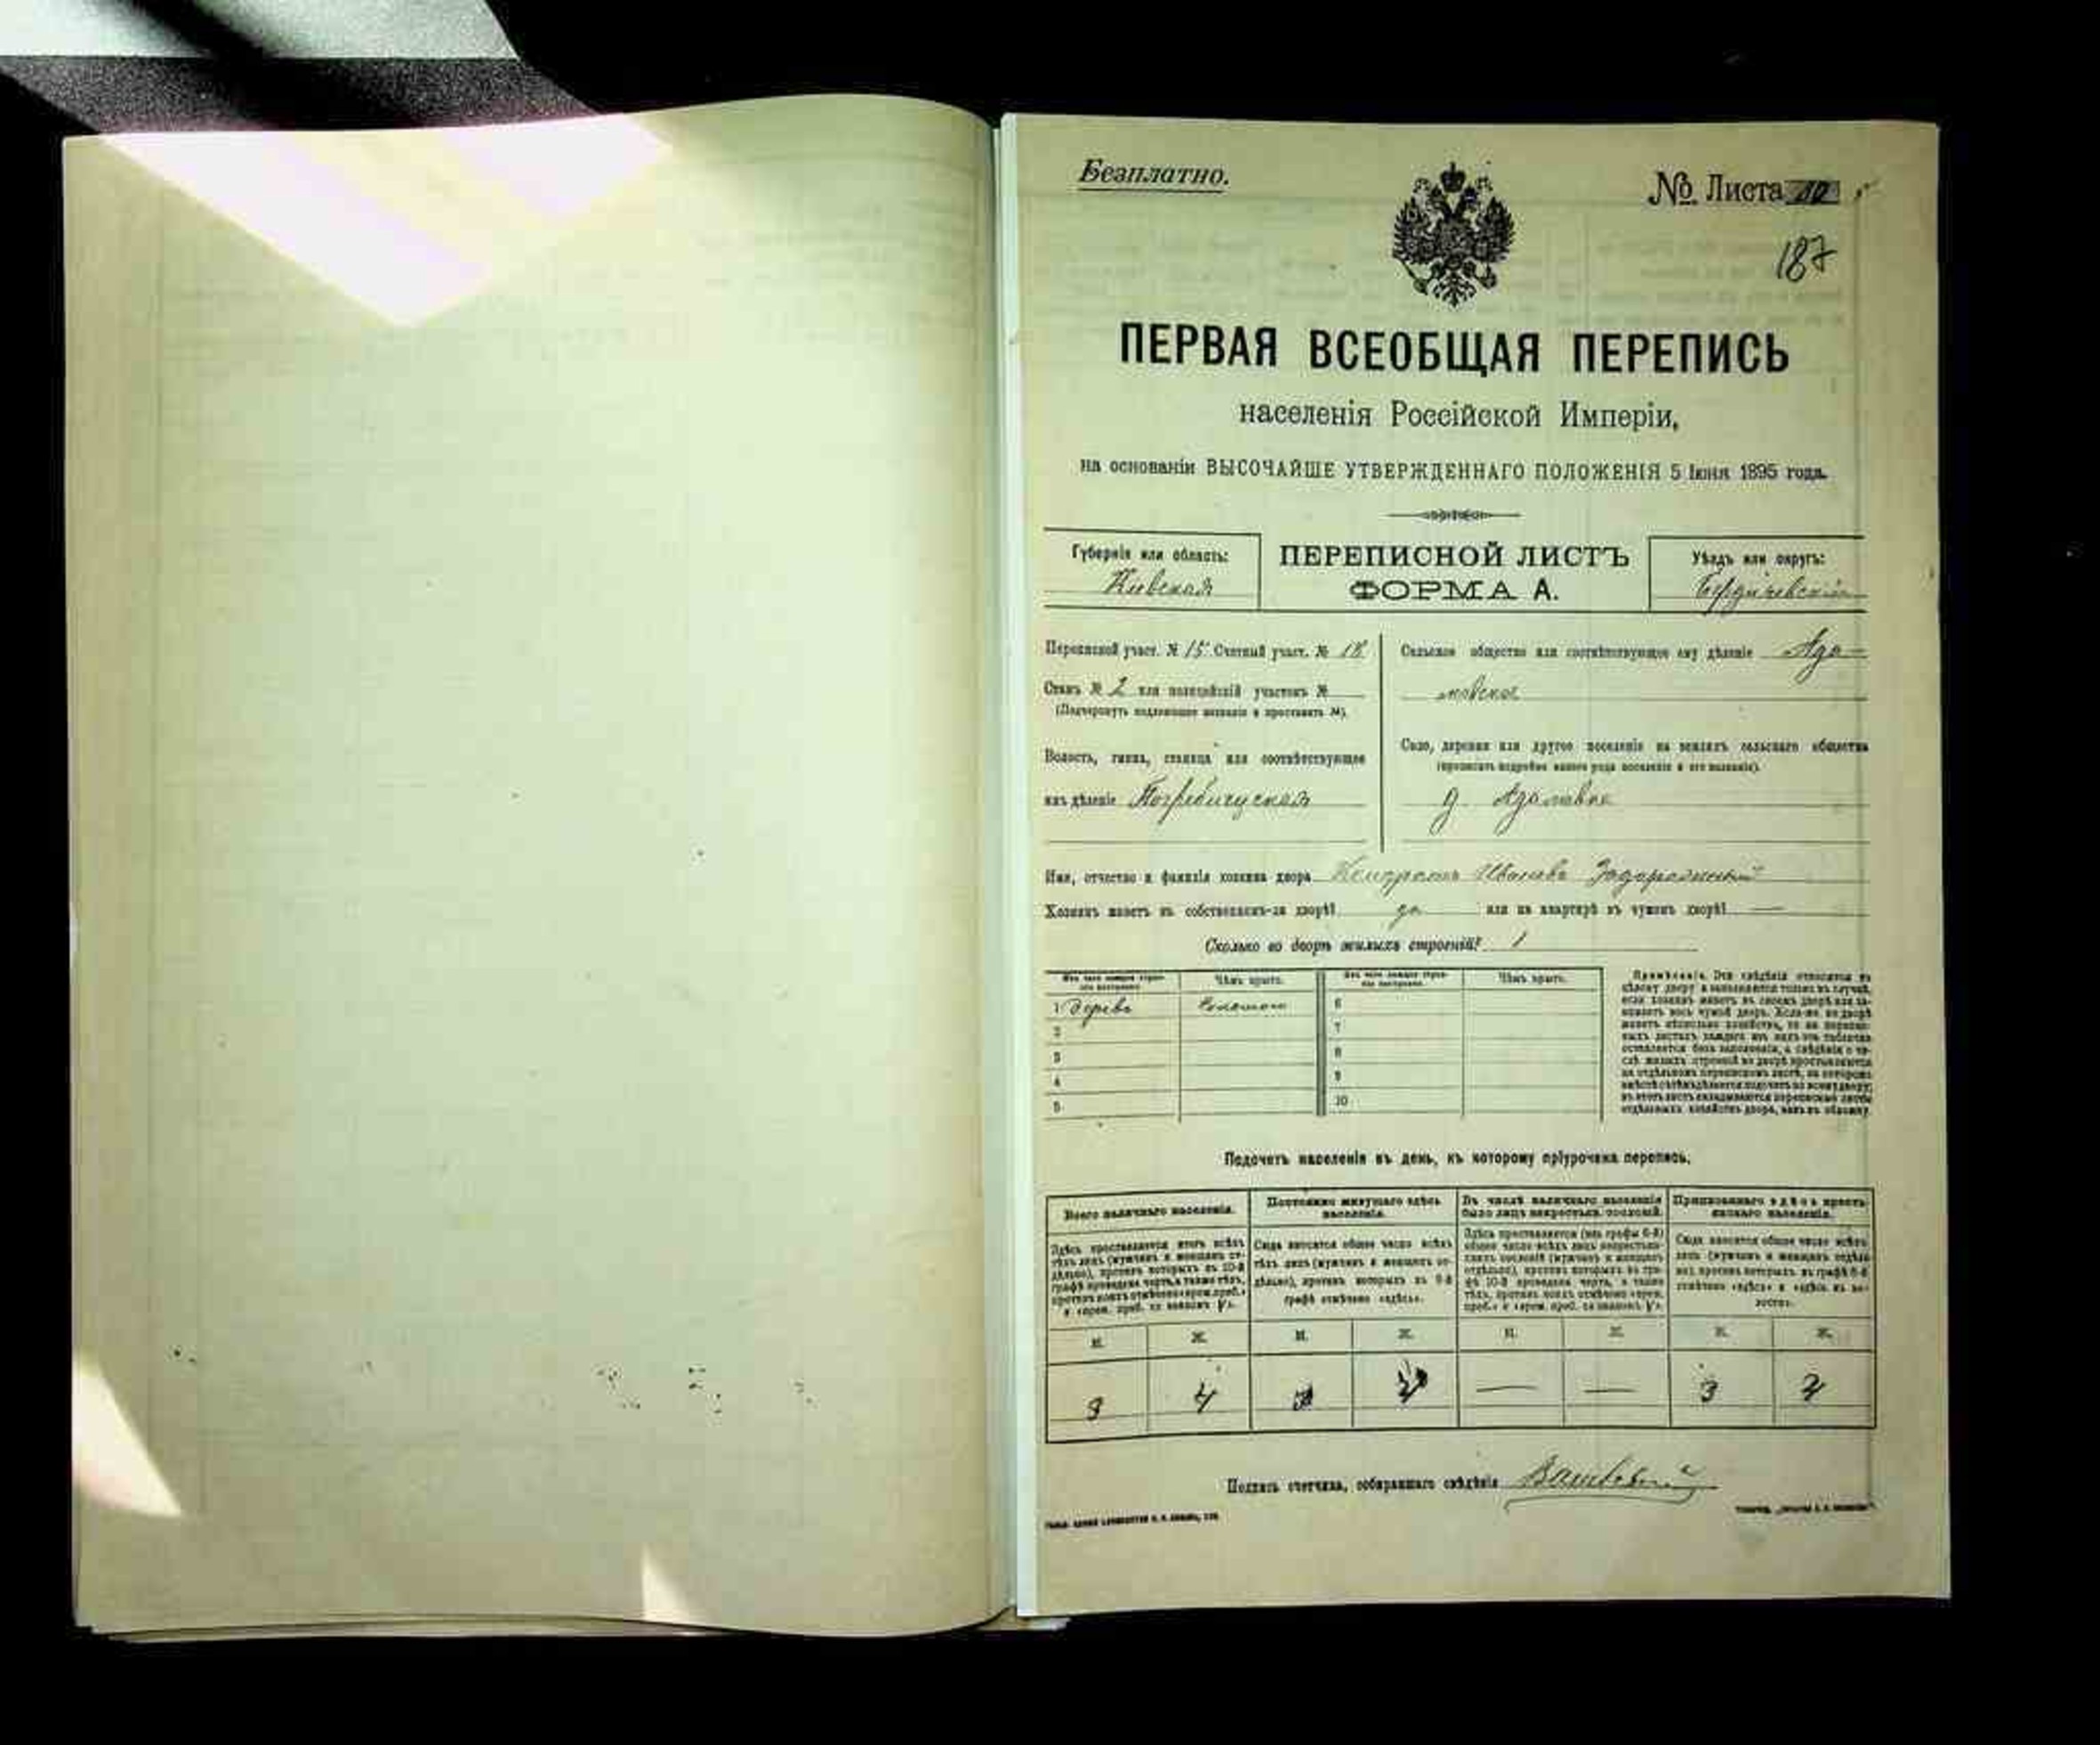 Безплатно.
№ Листа 10
187
ПЕРВАЯ ВСЕОБЩАЯ ПЕРЕПИСЬ
населенія Россійской Имперіи,
на основаніи ВЫСОЧАЙШЕ УТВЕРЖДЕННАГО ПОЛОЖЕНІЯ 5 Іюня 1895 года.
Губернія или область:
Кіевская
ПЕРЕПИСНОЙ ЛИСТЪ
ФОРМА А.
Уѣздъ или округъ:
Бердичевскій
Переписной участ. № 15 Счетный участ. № 18
Станъ № 2 или полицейскій участокъ №
(Подчеркнуть надлежащее названіе и проставить №).
Волость, гмина, станица или соотвѣтствующее
имъ дѣленіе Погребищская
Сельское общество или соотвѣтствующее ему дѣленіе Ада-
мовское
Село, деревня или другое поселеніе на земляхъ сельскаго общества
(прописать подробно какого рода поселеніе и его названіе).
д. Адамовка
Имя, отчество и фамилія хозяина двора Кондратъ Ивановъ Задорожный
Хозяинъ живетъ въ собственномъ-ли дворѣ? да или на квартирѣ въ чужомъ дворѣ? —
Сколько во дворѣ жилыхъ строеній? 1
Изъ чего каждое строеніе построено.
Чѣмъ крыто.
Изъ чего каждое строеніе построено.
Чѣмъ крыто.
1 дерева соломою 6
2 7
3 8
4 9
5 10
Примѣчаніе. Эти свѣдѣнія относятся къ
цѣлому двору и заполняются только въ случаѣ,
если хозяинъ живетъ въ своемъ дворѣ или за-
нимаетъ весь чужой дворъ. Если-же во дворѣ
живетъ нѣсколько хозяйствъ, то на перепис-
ныхъ листахъ каждаго изъ нихъ эта табличка
оставляется безъ заполненія, а свѣдѣнія о чи-
слѣ жилыхъ строеній во дворѣ проставляются
на отдѣльномъ переписномъ листѣ, на которомъ
вмѣстѣ съ тѣмъ дѣлается подсчетъ по всему двору;
въ этотъ листъ вкладываются переписные листы
отдѣльныхъ хозяйствъ двора, какъ въ обложку.
Подсчетъ населенія въ день, къ которому пріурочена перепись.
Всего наличнаго населенія.
Здѣсь проставляется итогъ всѣхъ
тѣхъ лицъ (мужчинъ и женщинъ от-
дѣльно), противъ которыхъ въ 10-й
графѣ проведена черта, а также тѣхъ,
противъ коихъ отмѣчено «врем. проб.»
Постоянно живущаго здѣсь
населенія.
Сюда вносится общее число всѣхъ
тѣхъ лицъ (мужчинъ и женщинъ от-
дѣльно), противъ которыхъ въ 9-й
графѣ отмѣчено «здѣсь».
Въ числѣ наличнаго населенія
было лицъ некрестьян. сословій.
Здѣсь проставляется (изъ графы 6-й)
общее число всѣхъ лицъ некрестьян-
скихъ сословій (мужчинъ и женщинъ
отдѣльно), противъ которыхъ въ гра-
фѣ 10-й проведена черта, а также
тѣхъ, противъ коихъ отмѣчено «врем.
Приписаннаго здѣсь кресть-
янскаго населенія.
Сюда вносится общее число всѣхъ
лицъ (мужчинъ и женщинъ отдѣль-
но), противъ которыхъ въ графѣ 8-й
отмѣчено «здѣсь» и «здѣсь въ во-
лости».
М. Ж. М. Ж. М. Ж. М. Ж.
3 4 — — 3 2
Подпись счетчика, собиравшаго свѣдѣнія